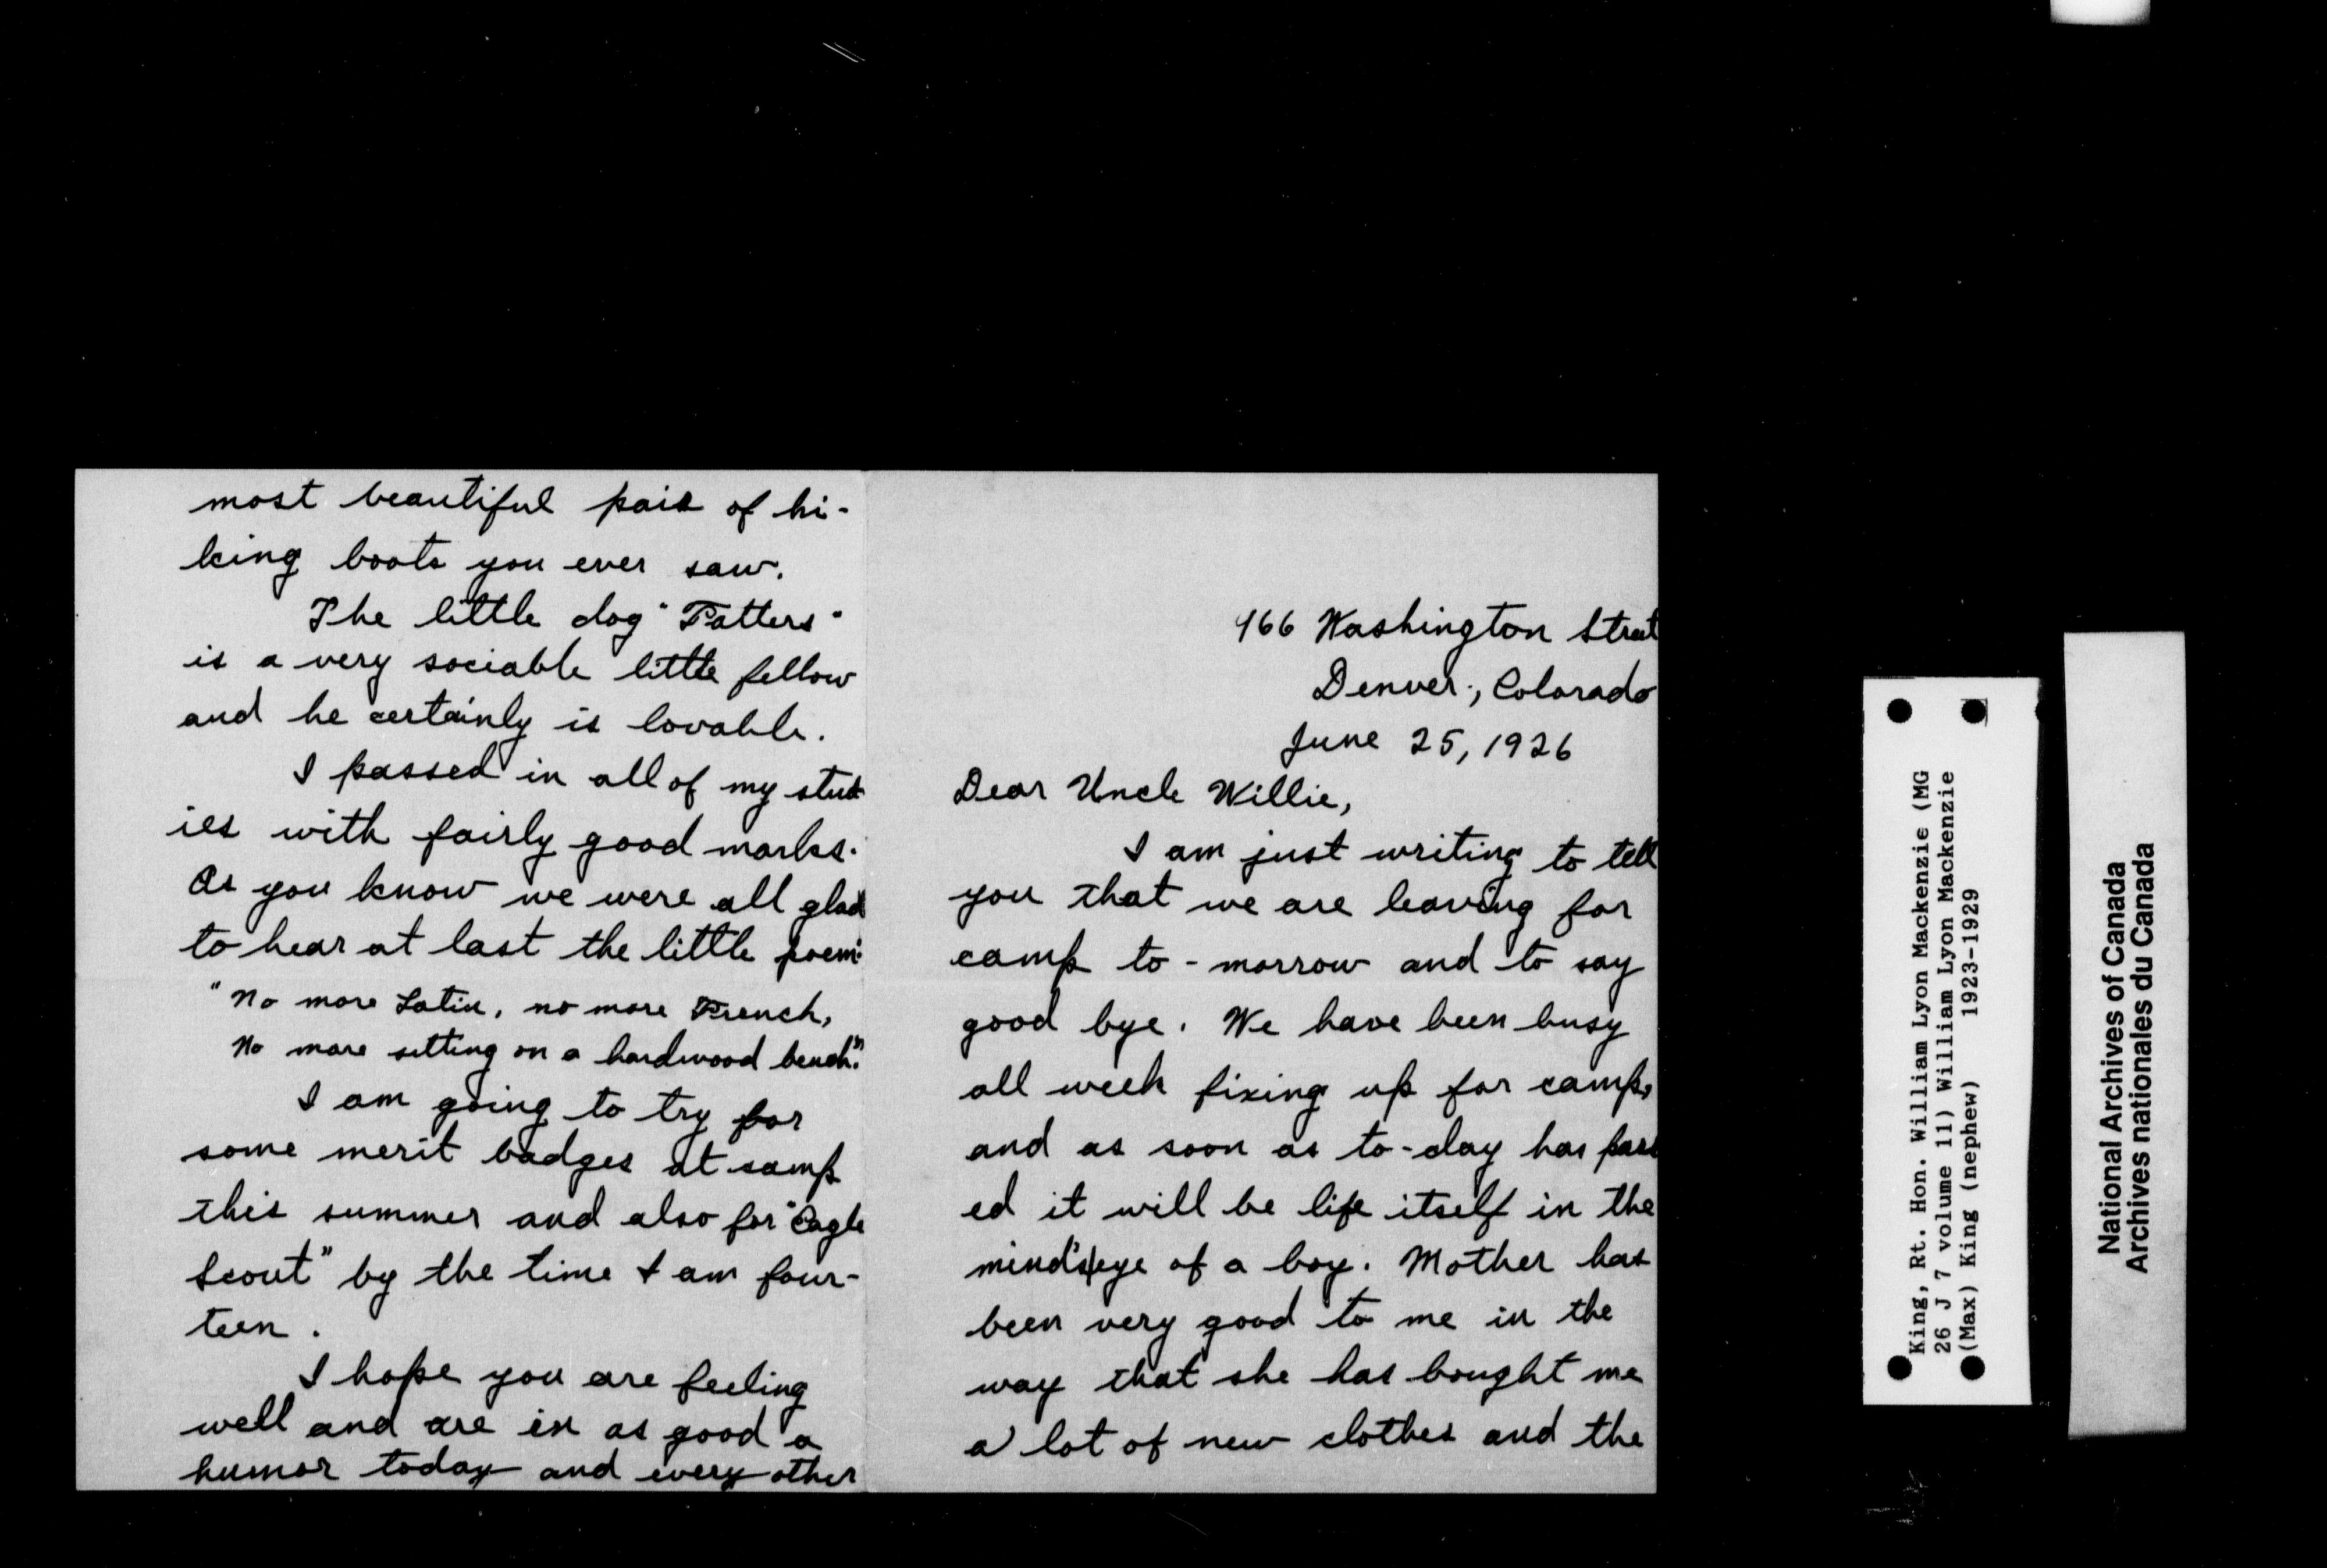 466 Washington Street
Denver, Colorado
June 25, 1926
Dear Uncle Willie,
I am just writing to tell
you that we are leaving for
camp to-morrow and to say
good bye. We have been busy
all week fixing up for camp,
and as soon as to-day has pass
ed it will be life itself in the
mind's eye of a boy. Mother has
been very good to me in the
way that she has bought me
a lot of new clothes and the
most beautiful pair of hi-
king boots you ever saw.
The little dog "Tatters"
is a very sociable little fellow
and he certainly is lovable.
I passed in all of my stud
ies with fairly good marks.
As you know we were all glad
to hear at last the little poem:
"No more Latin, no more French,
No more sitting on a hardwood bench."
I am going to try for
some merit badges at camp
this summer and also for "Eagle
Scout" by the time I am four-
teen.
I hope you are feeling
well and are in as good a
humor today and every other
King, Rt. Hon. William Lyon Mackenzie (MG
26 J 7 volume 11) William Lyon Mackenzie
(Max) King (nephew) 1923-1929
National Archives of Canada
Archives nationales du Canada